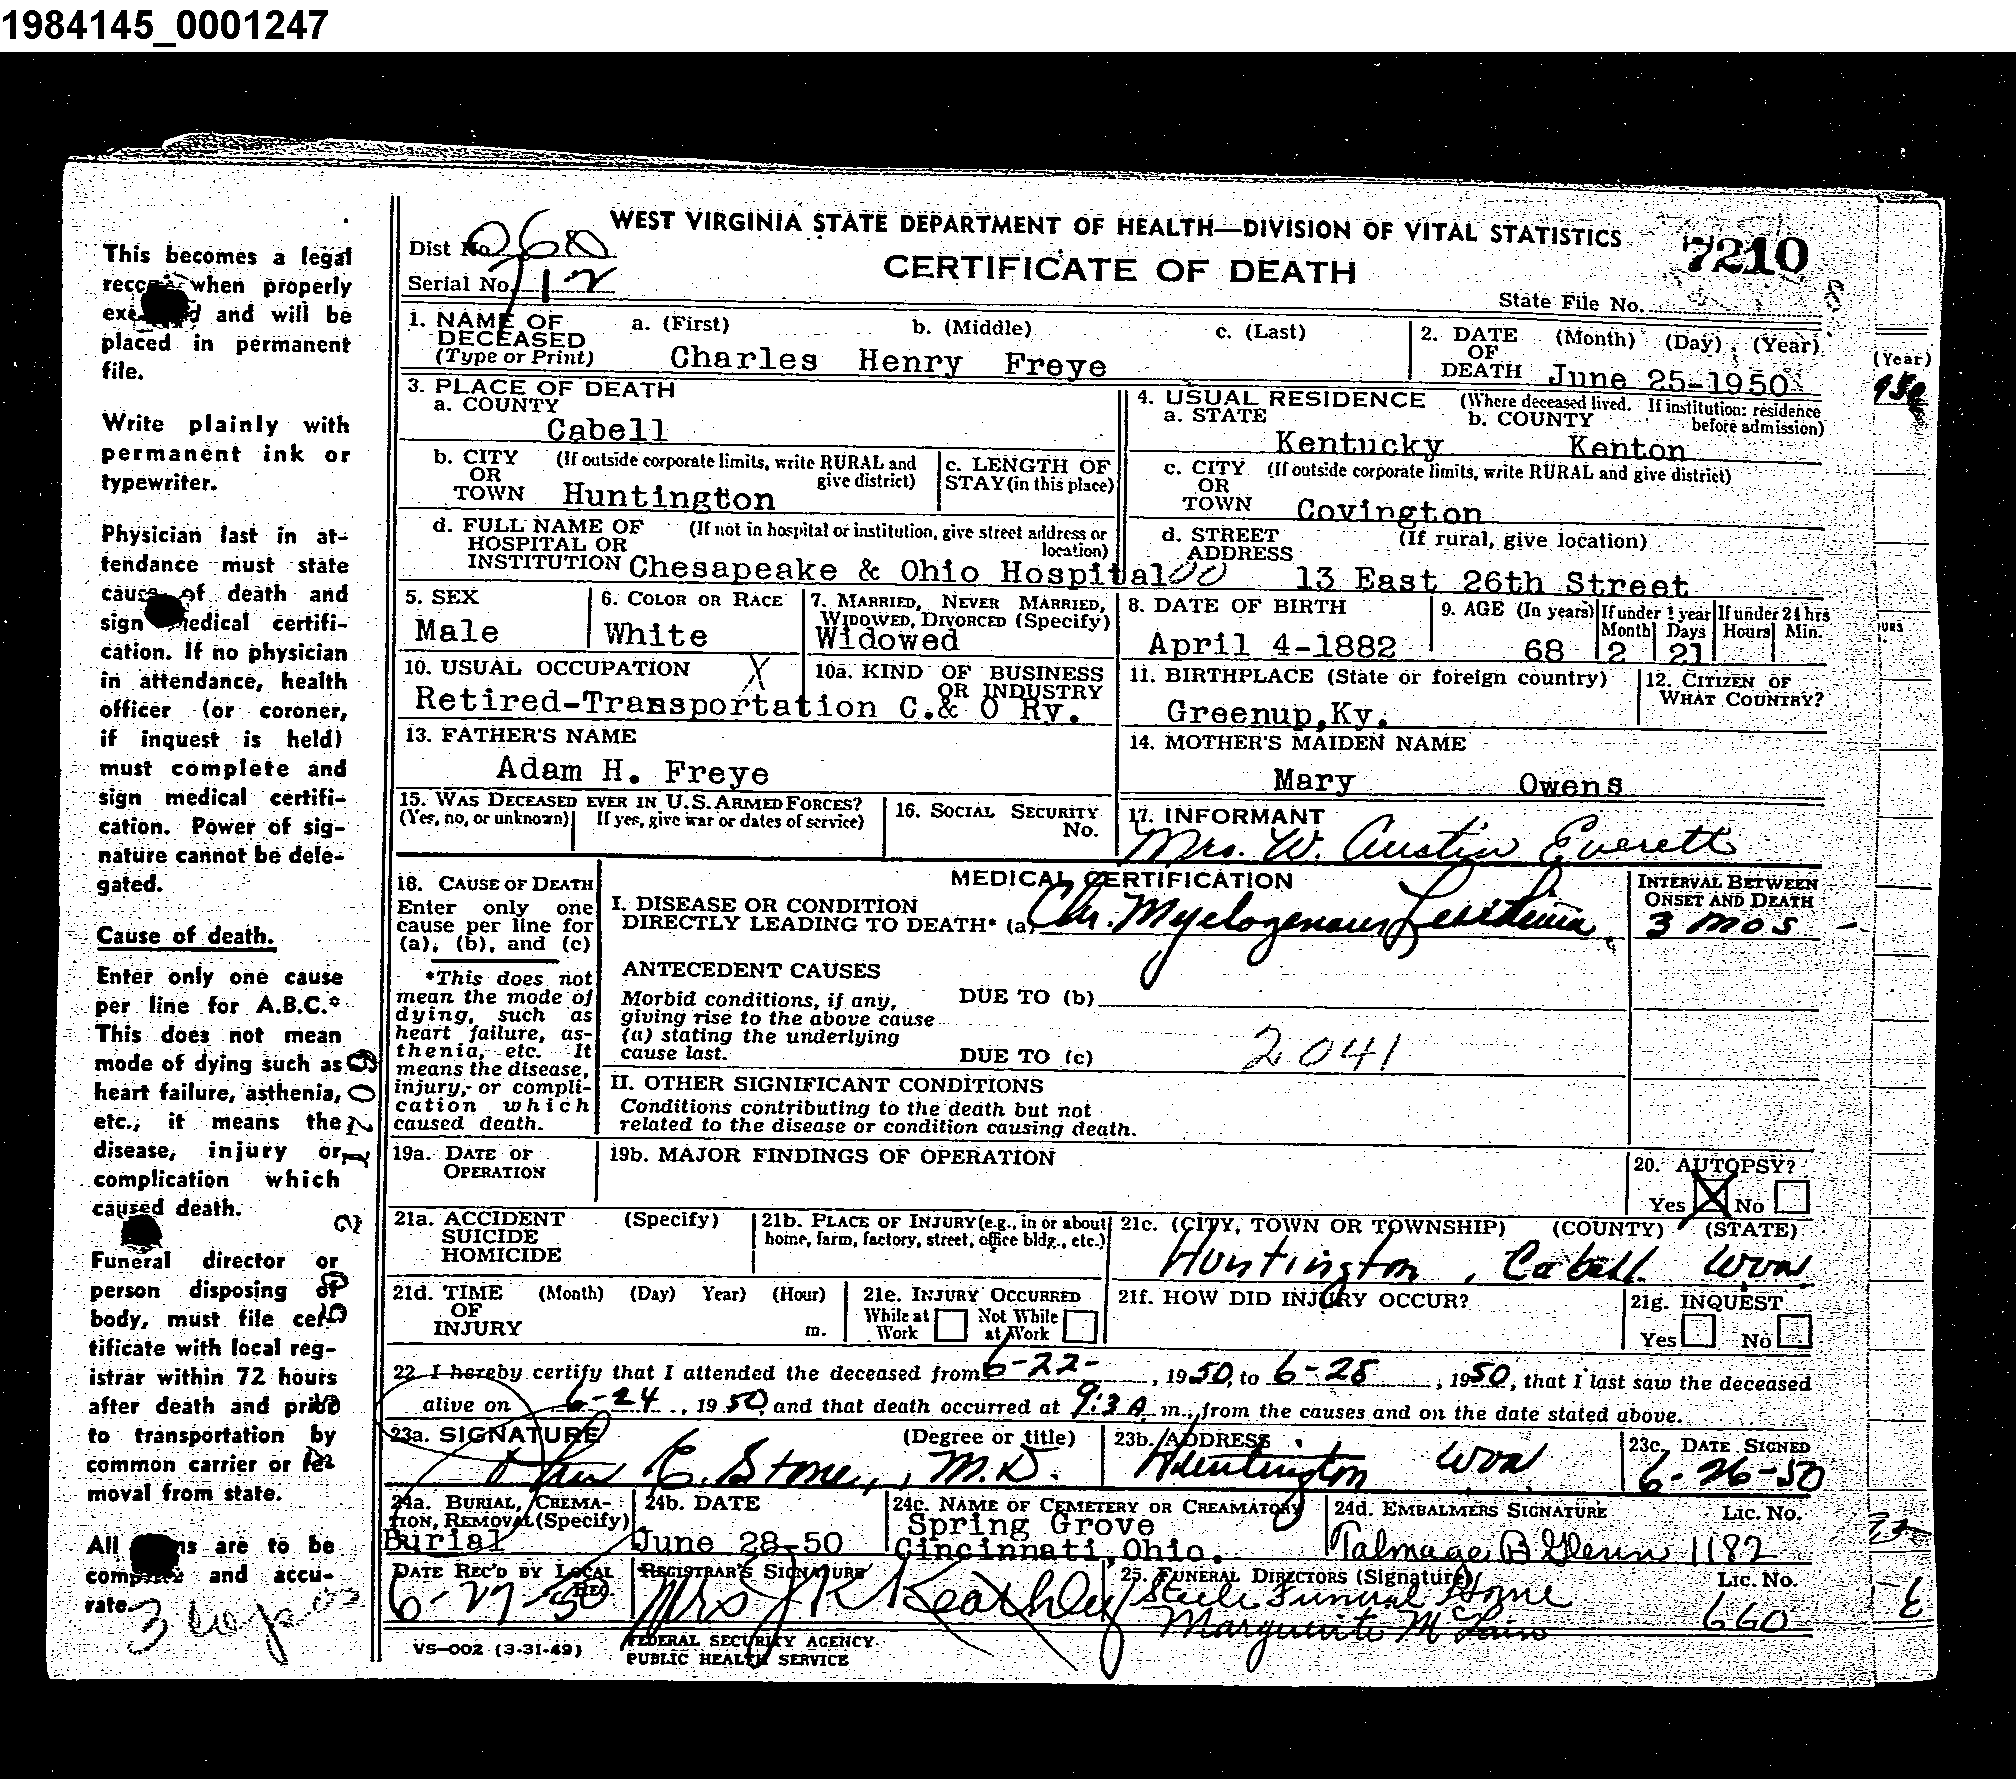 1984145_0001247
This becomes a legal
when properly
and will be
placed in permanent
file.
Write plainly with
permanent ink or
typewriter.
Physician last in at-
tendance must state
cause of death and
sign medical certifi-
cation. If no physician
in attendance, health
officer (or coroner,
if inquest is held)
must complete and
sign medical certifi-
cation. Power of sig-
nature cannot be dele-
gated.
Cause of death.
Enter only one cause
per line for A.B.C.*
This does not mean
mode of dying such as
heart failure, asthenia,
etc., it means the
disease, injury or
complication which
caused death.
Funeral director or
person disposing of
body, must file cer-
tificate with local reg-
istrar within 72 hours
after death and prior
to transportation by
common carrier or re-
moval from state.
All are to be
and accu-
rate.
WEST VIRGINIA STATE DEPARTMENT OF HEALTH—DIVISION OF VITAL STATISTICS
Dist No. 260
Serial No. 712
CERTIFICATE OF DEATH
7210
State File No.
1. NAME OF DECEASED (Type or Print) a. (First) b. (Middle) c. (Last)
Charles Henry Freye
2. DATE OF DEATH (Month) (Day) (Year)
June 25-1950
(Year)
3. PLACE OF DEATH
a. COUNTY
Cabell
4. USUAL RESIDENCE (Where deceased lived. If institution: residence before admission)
a. STATE b. COUNTY
Kentucky Kenton
b. CITY OR TOWN (If outside corporate limits, write RURAL and give district)
Huntington
c. LENGTH OF STAY (in this place)
c. CITY OR TOWN (If outside corporate limits, write RURAL and give district)
Covington
d. FULL NAME OF HOSPITAL OR INSTITUTION (If not in hospital or institution, give street address or location)
Chesapeake & Ohio Hospital 00
d. STREET ADDRESS (If rural, give location)
13 East 26th Street
5. SEX
Male
6. COLOR OR RACE
White
7. MARRIED, NEVER MARRIED, WIDOWED, DIVORCED (Specify)
Widowed
8. DATE OF BIRTH
April 4-1882
9. AGE (In years) If under 1 year If under 24 hrs
Month Days Hours Min.
68 2 21
10. USUAL OCCUPATION X
10a. KIND OF BUSINESS OR INDUSTRY
Retired-Transportation C.& O Ry.
11. BIRTHPLACE (State or foreign country)
Greenup,Ky.
12. CITIZEN OF WHAT COUNTRY?
13. FATHER'S NAME
Adam H. Freye
14. MOTHER'S MAIDEN NAME
Mary Owens
15. WAS DECEASED EVER IN U.S. ARMED FORCES?
(Yes, no, or unknown) If yes, give war or dates of service)
16. SOCIAL SECURITY No.
17. INFORMANT
Mrs. W. Austin Everett
18. CAUSE OF DEATH
Enter only one
cause per line for
(a), (b), and (c)
*This does not
mean the mode of
dying, such as
heart failure, as-
thenia, etc. It
means the disease,
injury, or compli-
cation which
caused death.
MEDICAL CERTIFICATION
I. DISEASE OR CONDITION
DIRECTLY LEADING TO DEATH* (a) Chr. Myelogenous Leukemia
INTERVAL BETWEEN ONSET AND DEATH
3 mos
ANTECEDENT CAUSES
Morbid conditions, if any,
giving rise to the above cause
(a) stating the underlying
cause last.
DUE TO (b)
DUE TO (c)
2041
II. OTHER SIGNIFICANT CONDITIONS
Conditions contributing to the death but not
related to the disease or condition causing death.
19a. DATE OF OPERATION
19b. MAJOR FINDINGS OF OPERATION
20. AUTOPSY?
Yes X No
21a. ACCIDENT SUICIDE HOMICIDE (Specify)
21b. PLACE OF INJURY (e.g., in or about home, farm, factory, street, office bldg., etc.)
21c. (CITY, TOWN OR TOWNSHIP) (COUNTY) (STATE)
Huntington, Cabell
21d. TIME OF INJURY (Month) (Day) Year) (Hour) m.
21e. INJURY OCCURRED
While at Work Not While at Work
21f. HOW DID INJURY OCCUR?
21g. INQUEST
Yes No
22. I hereby certify that I attended the deceased from 6-22-, 1950, to 6-25, 1950, that I last saw the deceased
alive on 6-24, 1950, and that death occurred at 9:3 A m., from the causes and on the date stated above.
23a. SIGNATURE (Degree or title)
E. Stone, M.D.
23b. ADDRESS
Huntington
23c. DATE SIGNED
6-26-50
24a. BURIAL, CREMA-
TION, REMOVAL (Specify)
Burial
24b. DATE
June 28-50
24c. NAME OF CEMETERY OR CREAMATORY
Spring Grove
Cincinnati,Ohio.
24d. EMBALMERS SIGNATURE Lic. No.
Talmage B Glenn 1182
DATE REC'D BY LOCAL REG.
6-27-50
REGISTRAR'S SIGNATURE
Mrs J K Keathley
25. FUNERAL DIRECTORS (Signature) Lic. No.
Steele Funeral Home
Marguerite McLain 660
VS-002 (3-31-49)
FEDERAL SECURITY AGENCY
PUBLIC HEALTH SERVICE